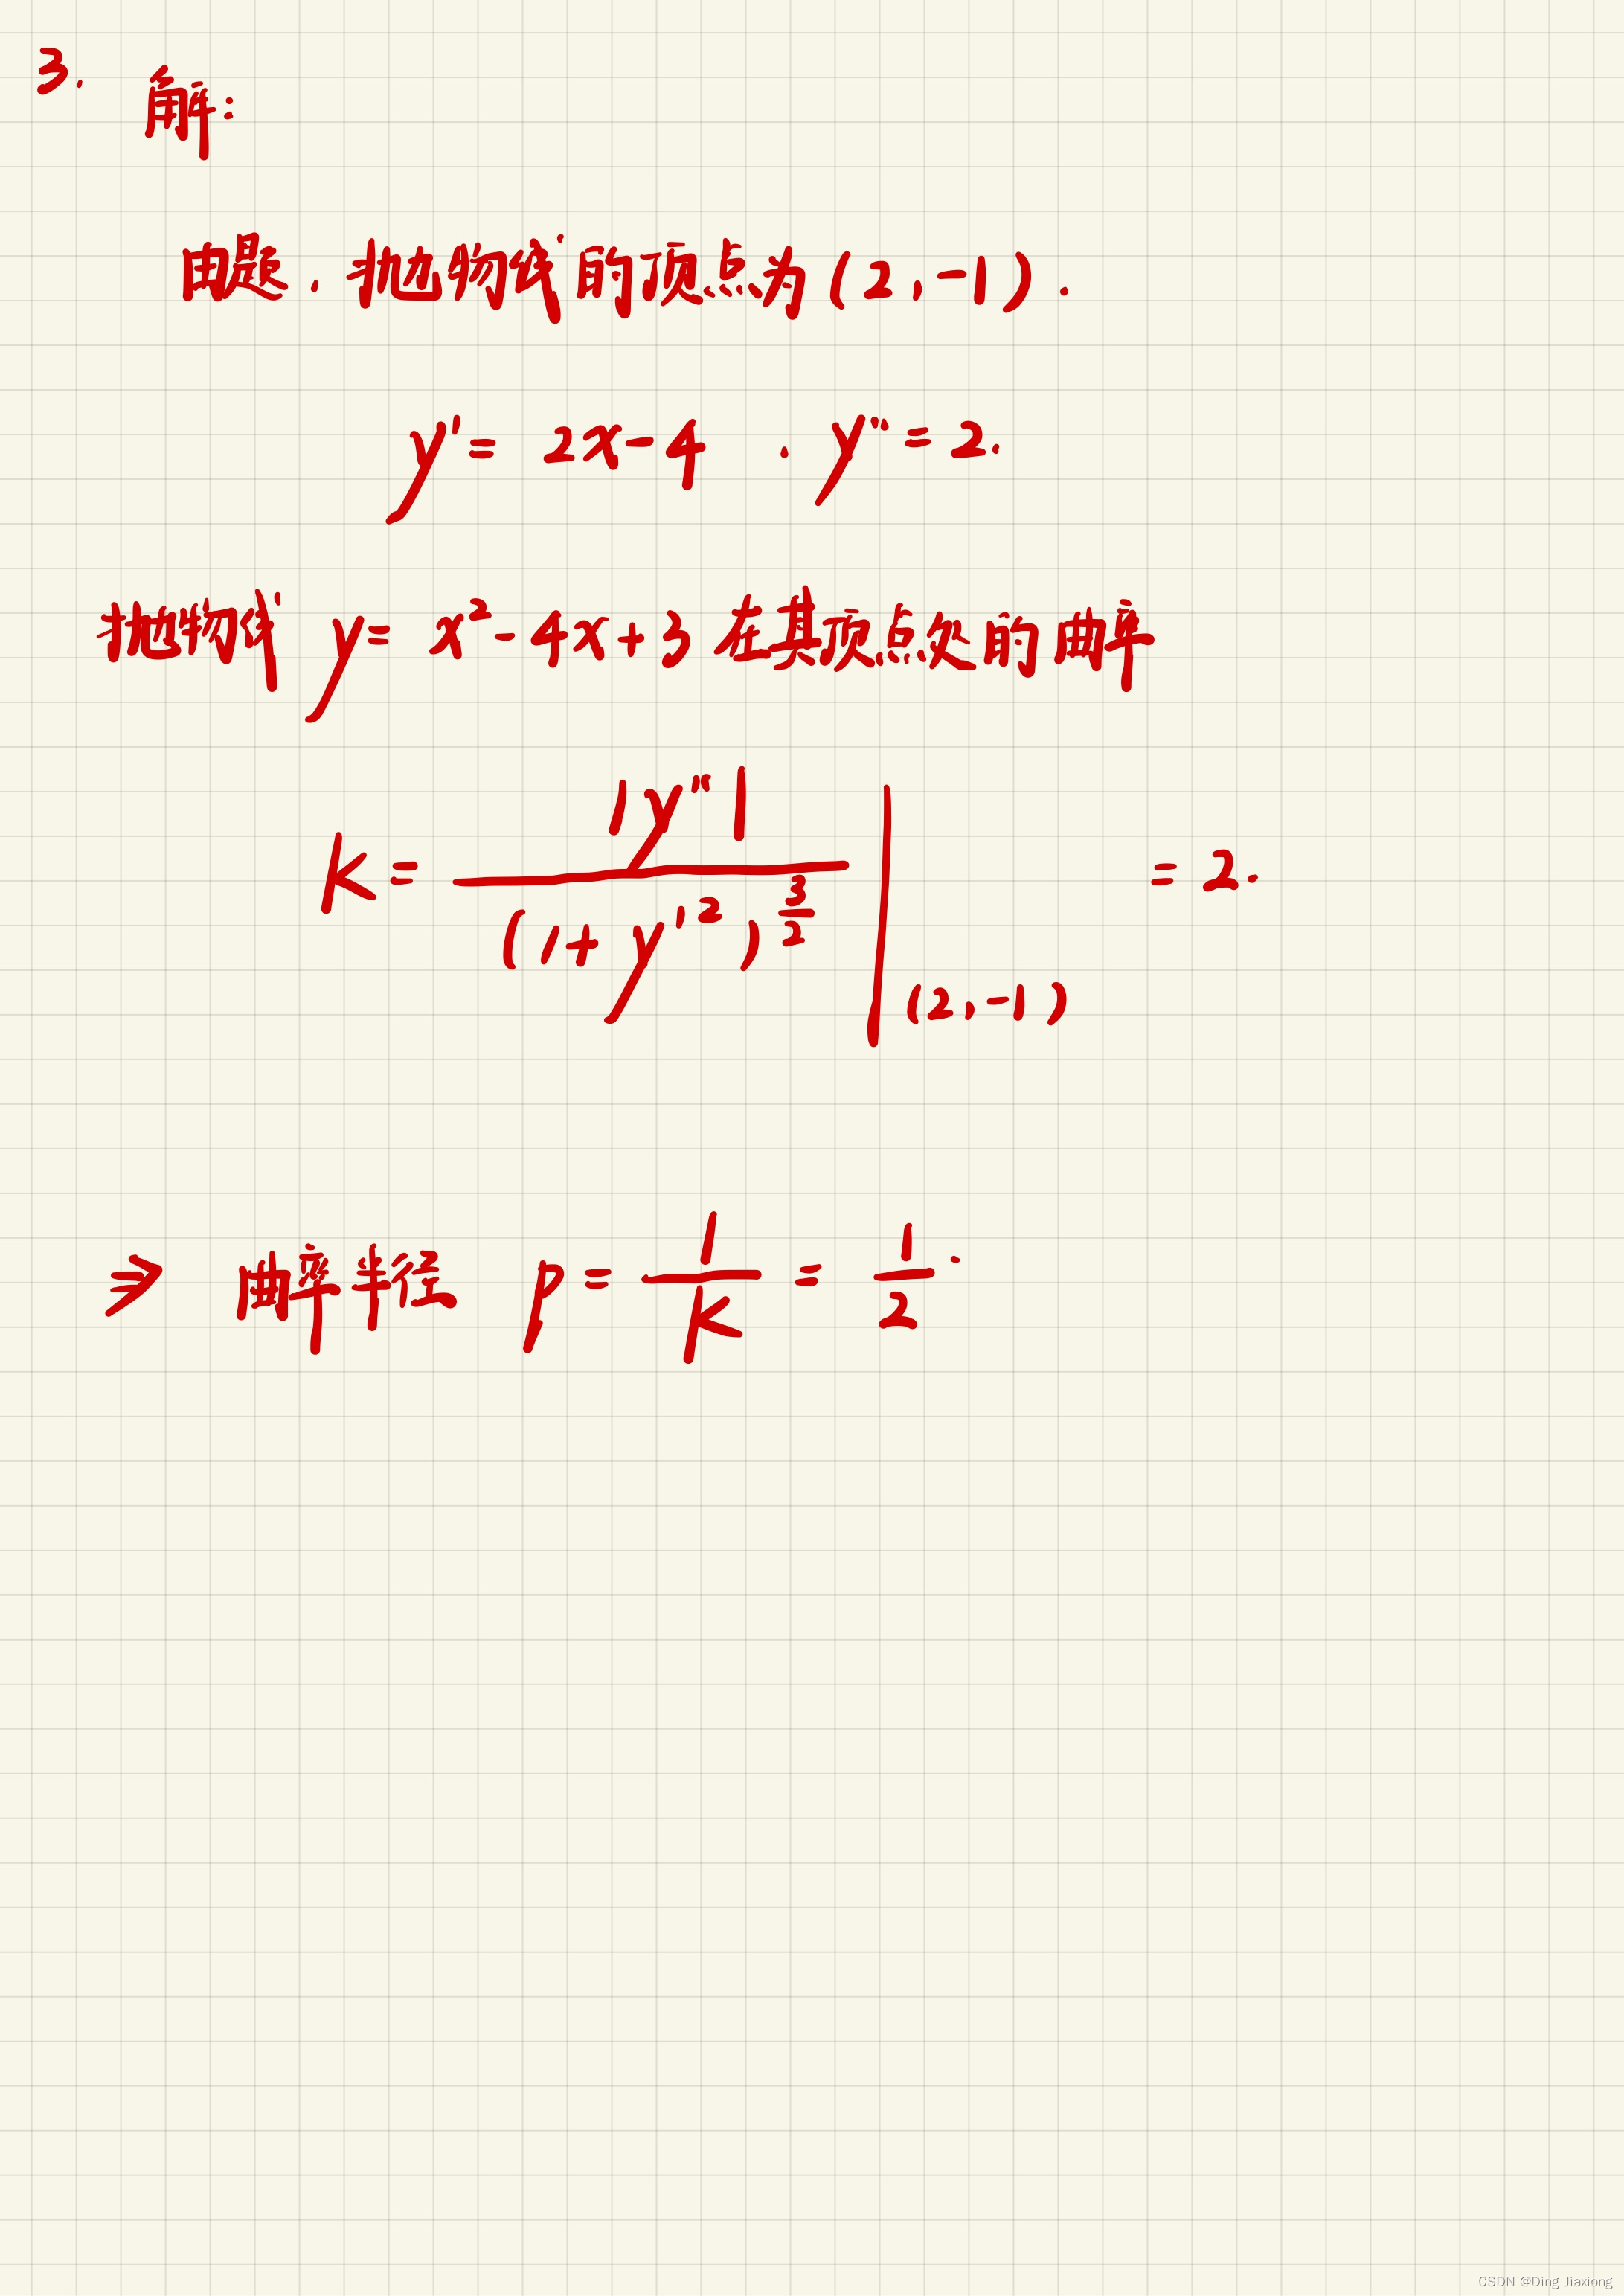 3. 解:
由题, 抛物线的顶点为(2,-1).
y' = 2x-4 , y'' = 2.
抛物线 y = x²-4x+3 在其顶点处的曲率
K = |y''| / (1+y'²)^(3/2) | (2,-1) = 2.
⇒ 曲率半径 ρ = 1/K = 1/2.
CSDN @Ding Jiaxiong